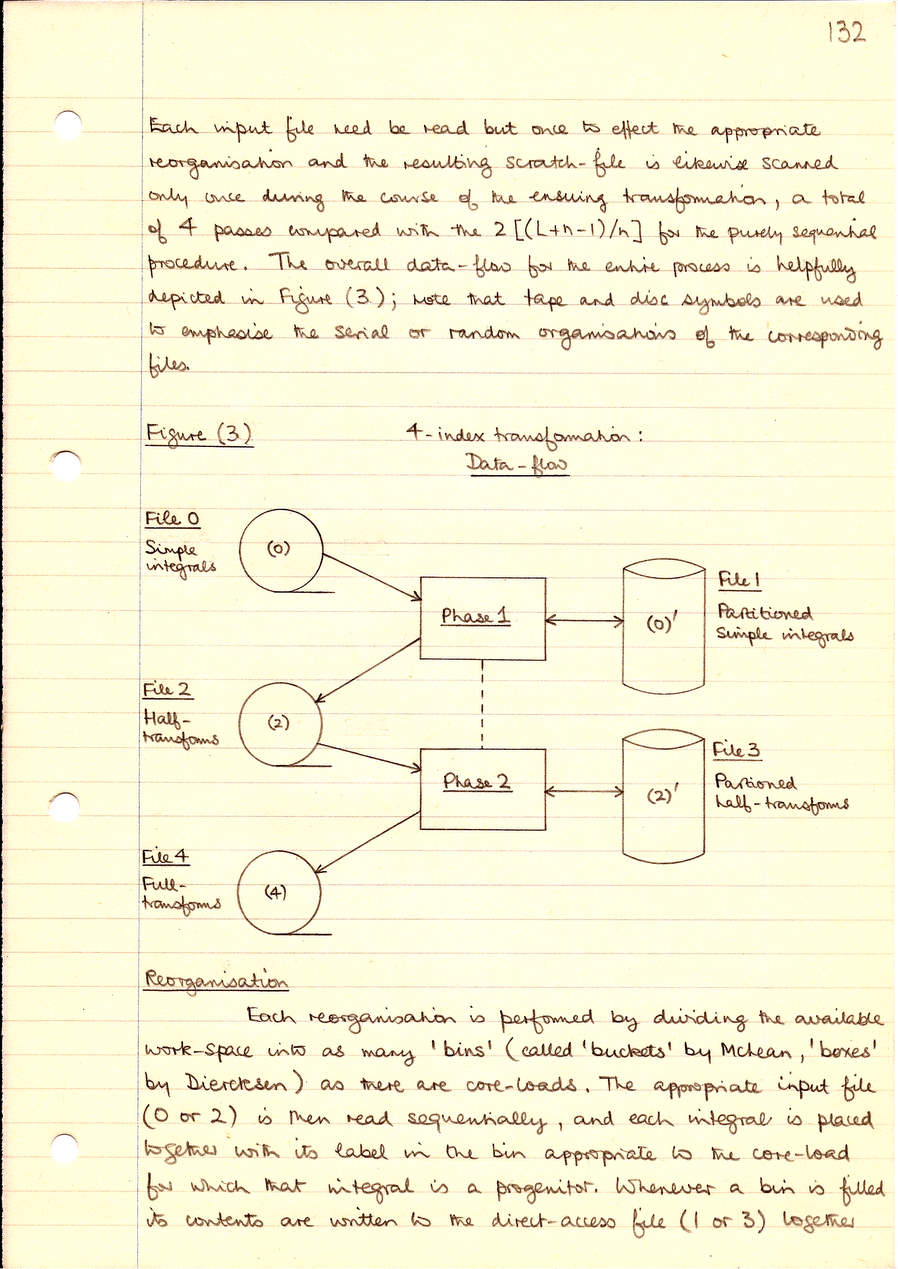 132
Each input file need be read but once to effect the appropriate
reorganisation and the resulting scratch-file is likewise scanned
only once during the course of the ensuing transformation, a total
of 4 passes compared with the 2[(L+n-1)/n] for the purely sequential
procedure. The overall data-flow for the entire process is helpfully
depicted in Figure (3); note that tape and disc symbols are used
to emphasise the serial or random organisations of the corresponding
files.
Figure (3)
4-index transformation:
Data-flow
File 0
Simple
integrals
(0)
Phase 1
(0)'
File 1
Partitioned
simple integrals
File 2
Half-
transforms
(2)
Phase 2
(2)'
File 3
Partioned
half-transforms
File 4
Full-
transforms
(4)
Reorganisation
Each reorganisation is performed by dividing the available
work-space into as many 'bins' (called 'buckets' by McLean, 'boxes'
by Diercksen) as there are core-loads. The appropriate input file
(0 or 2) is then read sequentially, and each integral is placed
together with its label in the bin appropriate to the core-load
for which that integral is a progenitor. Whenever a bin is filled
its contents are written to the direct-access file (1 or 3) together